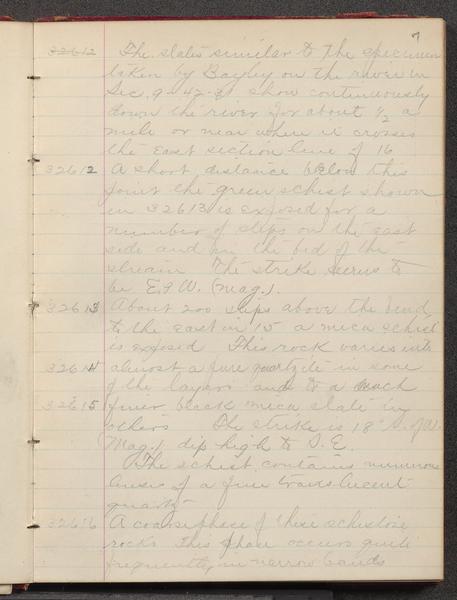 7
32612 The slates similar to the specimen
taken by Bayley on the river in
Sec. 9-42-31 show continuously
down the river for about ½ a
mile or near where it crosses
the East section line of 16
32612 A short distance below this
point the green schist shown
in 32613 is exposed for a
number of steps on the east
side and in the bed of the
stream The strike seems to
be E & W. (mag.).
32613 About 200 steps above the bend
to the east in 15 a mica schist
is exposed This rock varies into
32614 almost a pure quartzite in some
of the layers and to a much
32615 finer black mica slate in
others The strike is 18° S. of W.
(Mag.), dip high to S.E.
The schist contains numerous
of a fine translucent
quartz
32616 A coarse phase of these schistose
rocks This phase occurs quite
frequently in narrow bands